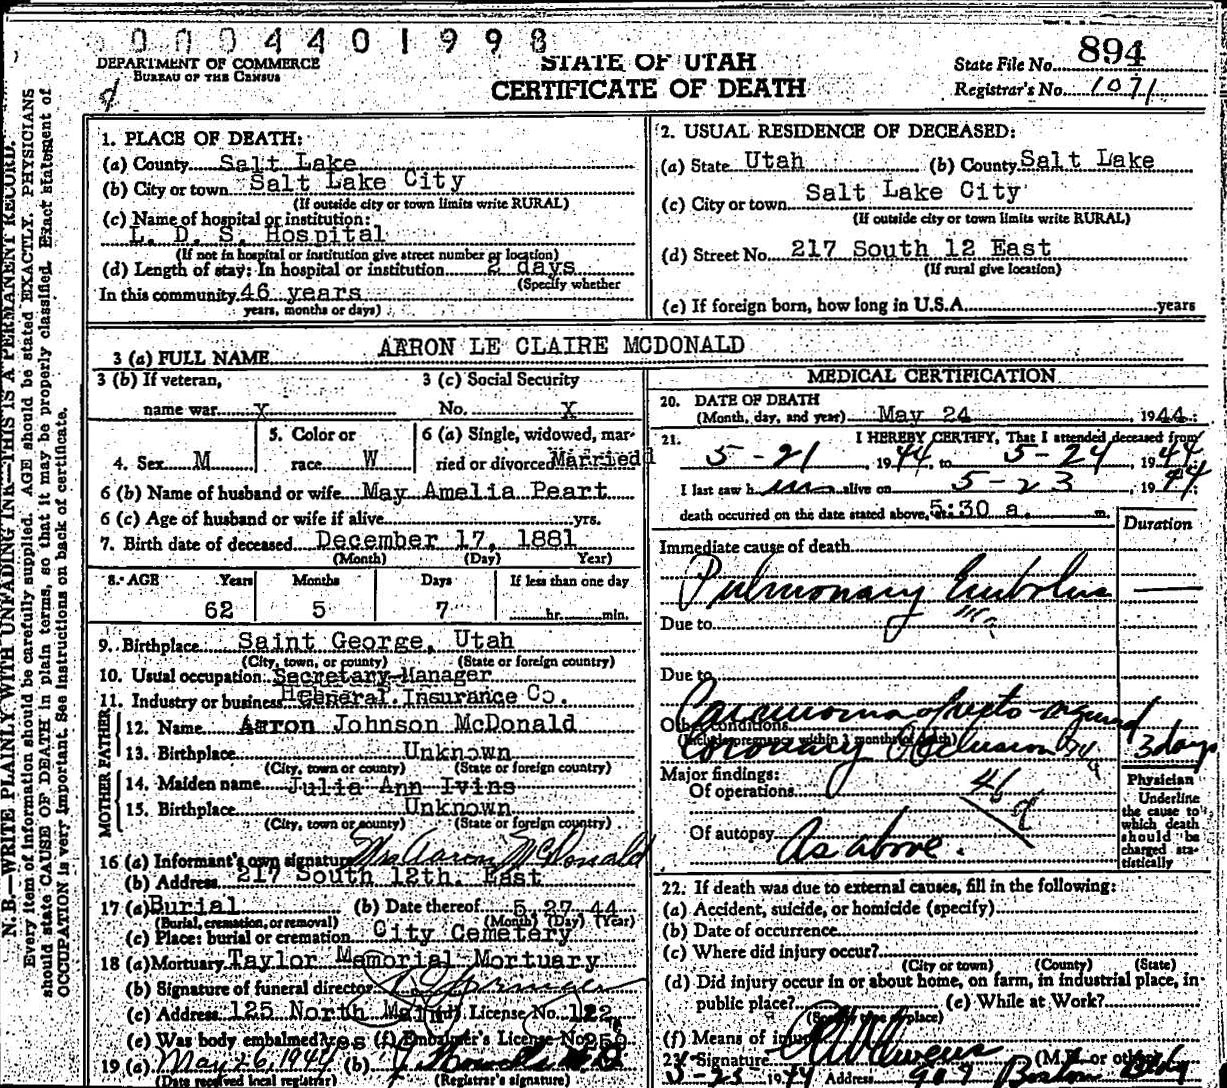 0004401998
DEPARTMENT OF COMMERCE
BUREAU OF THE CENSUS
STATE OF UTAH
CERTIFICATE OF DEATH
State File No. 894
Registrar's No. 1071
N. B.—WRITE PLAINLY WITH UNFADING INK—THIS IS A PERMANENT RECORD.
Every item of information should be carefully supplied. AGE should be stated EXACTLY. PHYSICIANS
should state CAUSE OF DEATH in plain terms, so that it may be properly classified. Exact statement of
OCCUPATION is very important. See instructions on back of certificate.
1. PLACE OF DEATH:
(a) County Salt Lake
(b) City or town Salt Lake City
(If outside city or town limits write RURAL)
(c) Name of hospital or institution:
L. D. S. Hospital
(If not in hospital or institution give street number or location)
(d) Length of stay: In hospital or institution 2 days
(Specify whether
In this community 46 years
years, months or days)
2. USUAL RESIDENCE OF DECEASED:
(a) State Utah (b) County Salt Lake
(c) City or town Salt Lake City
(If outside city or town limits write RURAL)
(d) Street No. 217 South 12 East
(If rural give location)
(e) If foreign born, how long in U.S.A. years
3 (a) FULL NAME AARON LE CLAIRE MCDONALD
3 (b) If veteran,
name war X
3 (c) Social Security
No. X
4. Sex M
5. Color or
race W
6 (a) Single, widowed, mar-
ried or divorced Married
6 (b) Name of husband or wife May Amelia Peart
6 (c) Age of husband or wife if alive yrs.
7. Birth date of deceased December 17, 1881
(Month) (Day) Year)
8. AGE Years Months Days If less than one day
62 5 7 hr. min.
9. Birthplace Saint George, Utah
(City, town, or county) (State or foreign country)
10. Usual occupation Secretary-Manager
11. Industry or business General Insurance Co.
FATHER
12. Name Aaron Johnson McDonald
13. Birthplace Unknown
(City, town or county) (State or foreign country)
MOTHER
14. Maiden name Julia Ann Ivins
15. Birthplace Unknown
(City, town or county) (State or foreign country)
16 (a) Informant's own signature Mrs Aaron McDonald
(b) Address 217 South 12th. East
17 (a) Burial (b) Date thereof 5 27 44
(Burial, cremation, or removal) (Month) (Day) (Year)
(c) Place: burial or cremation City Cemetery
18 (a) Mortuary Taylor Memorial Mortuary
(b) Signature of funeral director
(c) Address 125 North Main (d) License No. 122
(e) Was body embalmed? Yes (f) Embalmer's License No.
19 (a) May 26, 1944 (b)
(Date received local registrar) (Registrar's signature)
MEDICAL CERTIFICATION
20. DATE OF DEATH
(Month, day, and year) May 24, 1944
21. I HEREBY CERTIFY, That I attended deceased from
5-21, 1944, to 5-24, 1944
I last saw him alive on 5-23, 1944
death occurred on the date stated above, 5:30 a. m.
Duration
Immediate cause of death
Pulmonary Embolus —
Due to
Due to
Carcinoma of recto-sigmoid
Other conditions
(Include pregnancy within 3 months of death)
Coronary Occlusion 3 days
Major findings:
Of operations
46 d
Of autopsy As above.
Physician
Underline
the cause to
which death
should be
charged sta-
tistically
22. If death was due to external causes, fill in the following:
(a) Accident, suicide, or homicide (specify)
(b) Date of occurrence
(c) Where did injury occur?
(City or town) (County) (State)
(d) Did injury occur in or about home, on farm, in industrial place, in
public place? (e) While at Work?
(Specify type of place)
(f) Means of injury
23. Signature (M.D. or other)
5-25 1944 Address 907 Boston Bldg